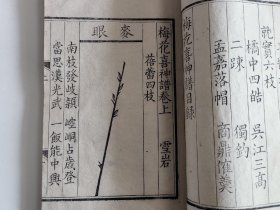 就實六枝
橘中四皓 吳江三高
二疎 獨釣
孟嘉落帽 商鼎催羹
梅花喜神譜目錄
梅花喜神譜卷上 雪岩
蓓蕾四枝
麥眼
南枝發岐穎 崆峒占歲登
當思漢光武 一飯能中興